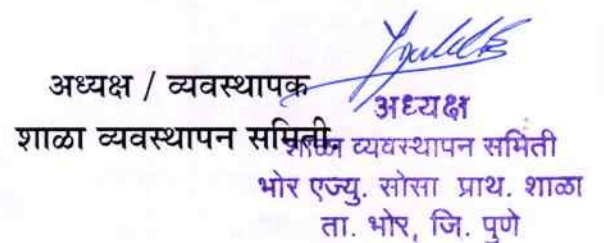 अध्यक्ष / व्यवस्थापक
शाळा व्यवस्थापन समिती.
अध्यक्ष
शाळा व्यवस्थापन समिती
भोर एज्यु. सोसा प्राथ. शाळा
ता. भोर, जि. पुणे